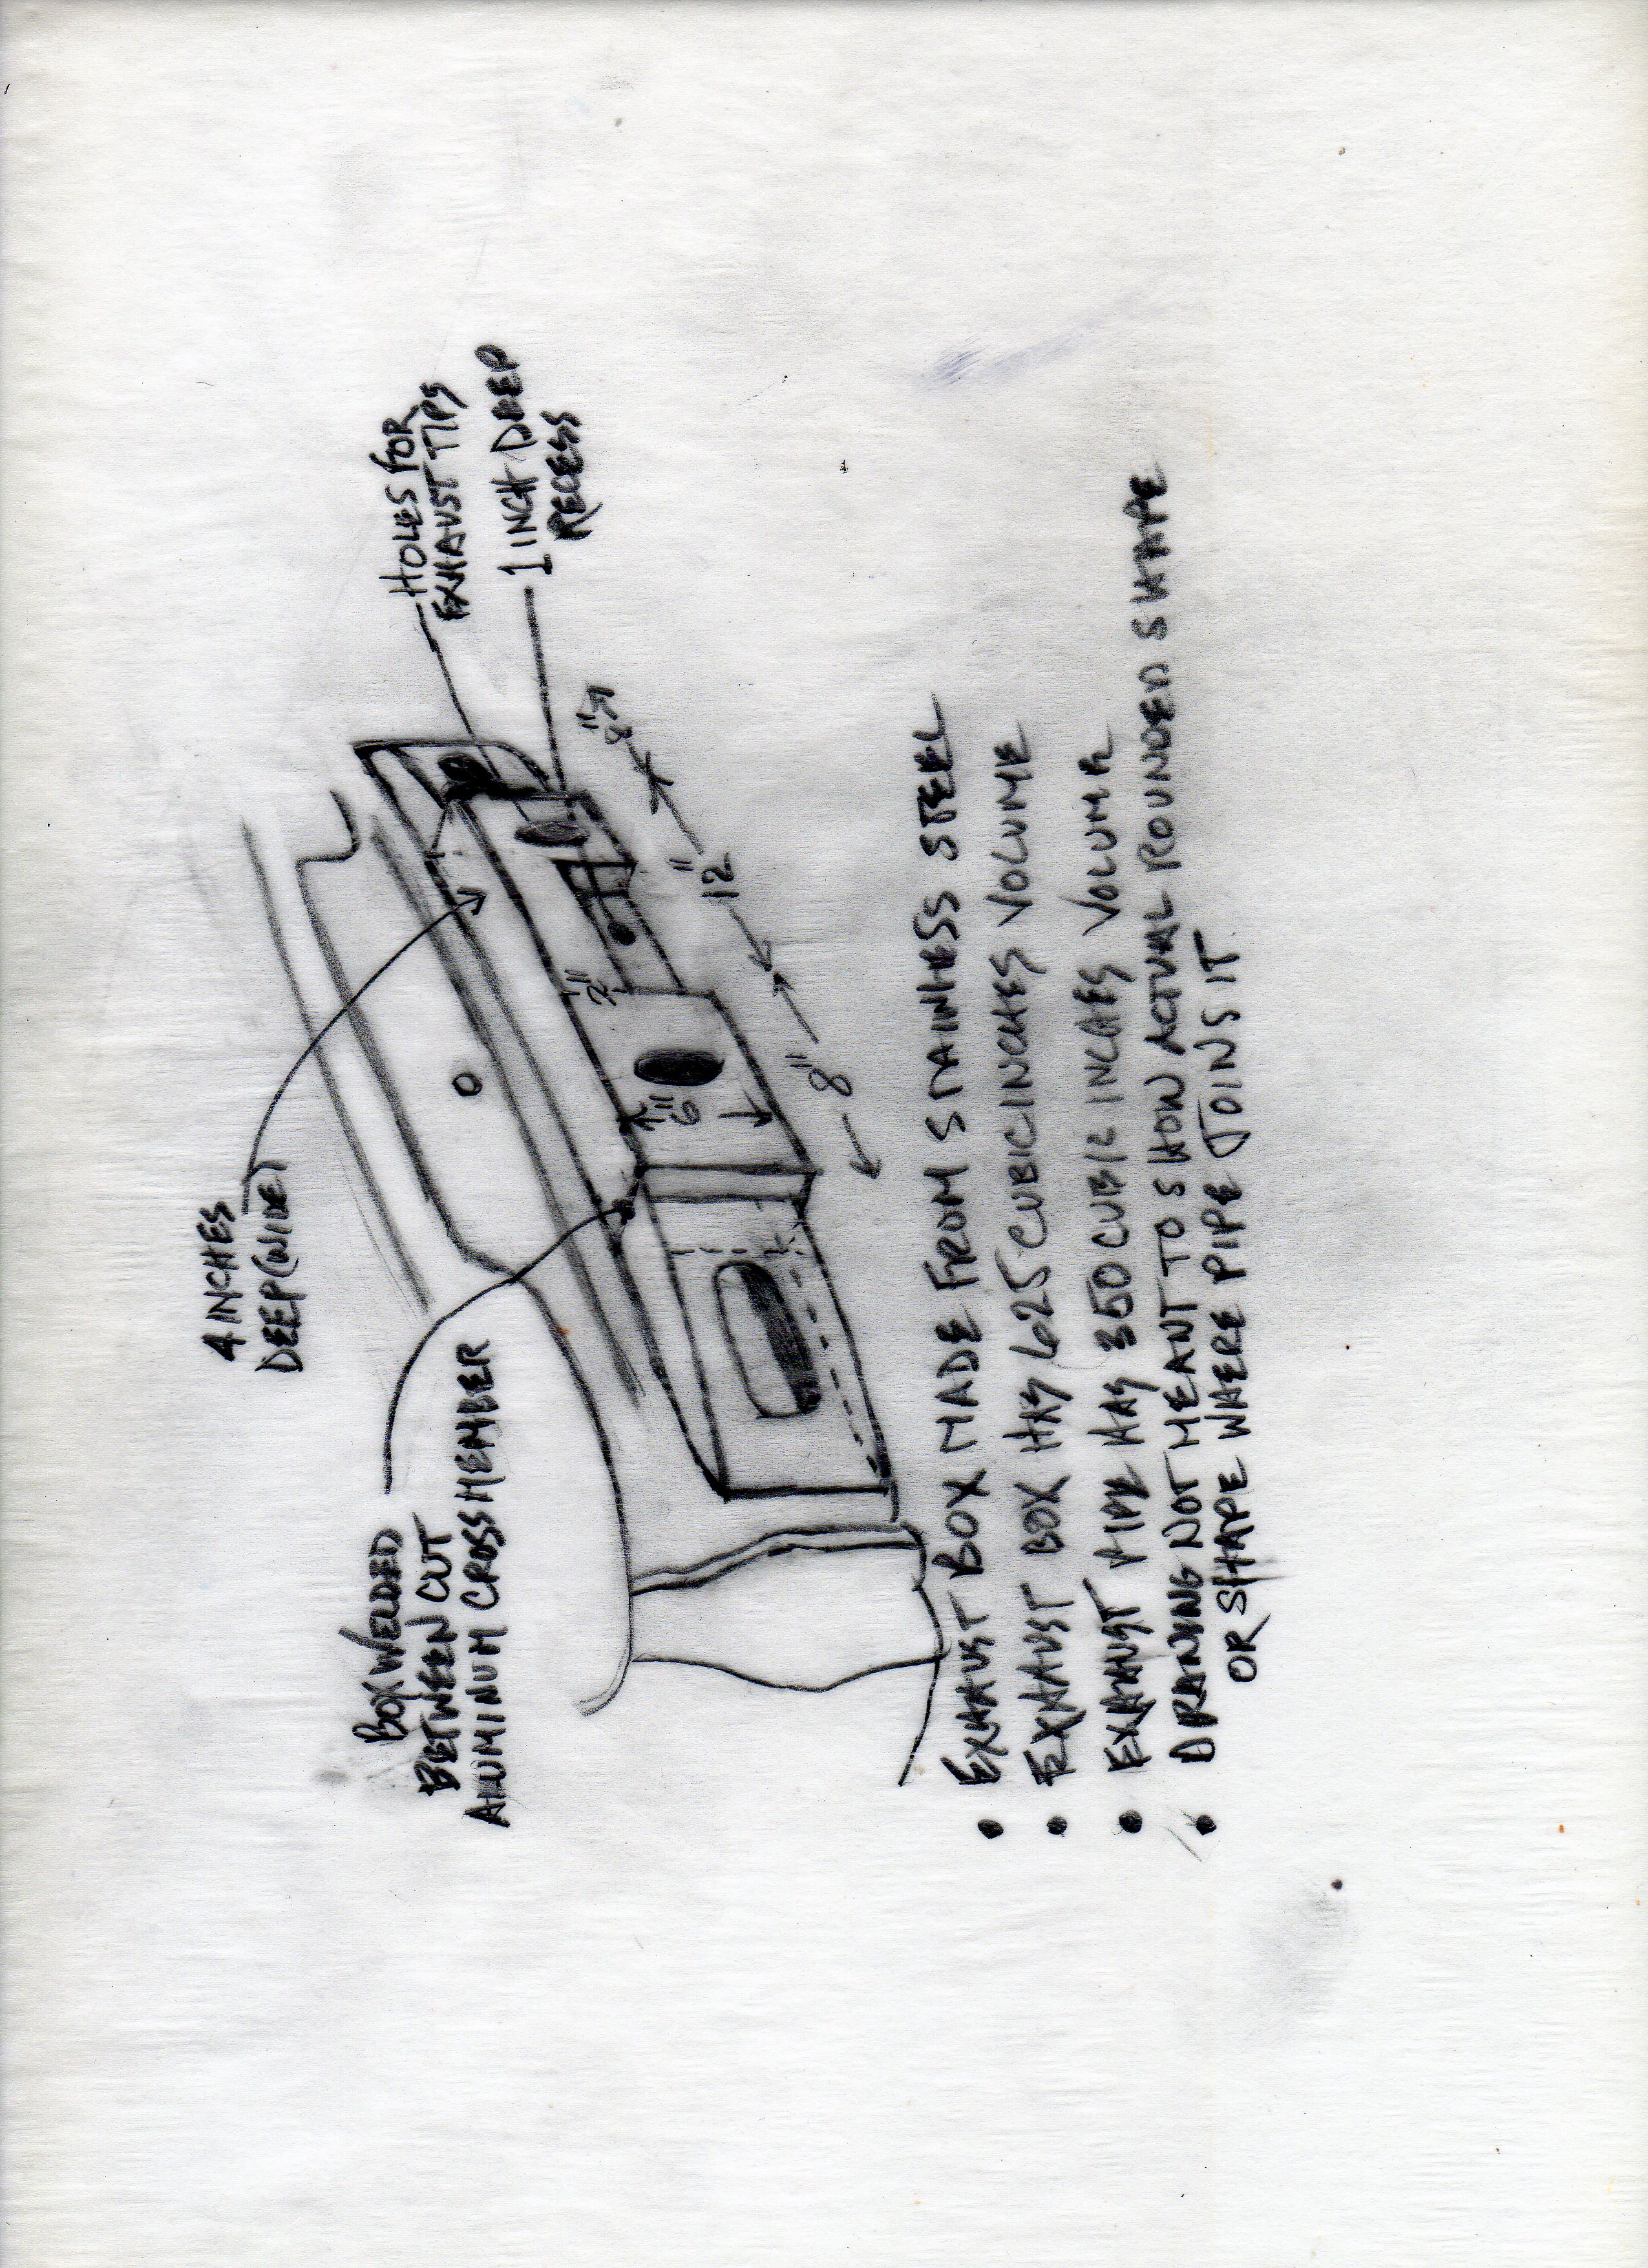 4 INCHES
DEEP (WIDE)
BOX WELDED
BETWEEN CUT
ALUMINUM CROSSMEMBER
HOLES FOR
EXHAUST TIPS
1 INCH DEEP
RECESS
2"
6"
8"
12"
8"
• EXHAUST BOX MADE FROM STAINLESS STEEL
• EXHAUST BOX HAS 625 CUBIC INCHES VOLUME
• EXHAUST PIPE HAS 350 CUBIC INCHES VOLUME
• DRAWING NOT MEANT TO SHOW ACTUAL ROUNDED SHAPE
OR SHAPE WHERE PIPE JOINS IT